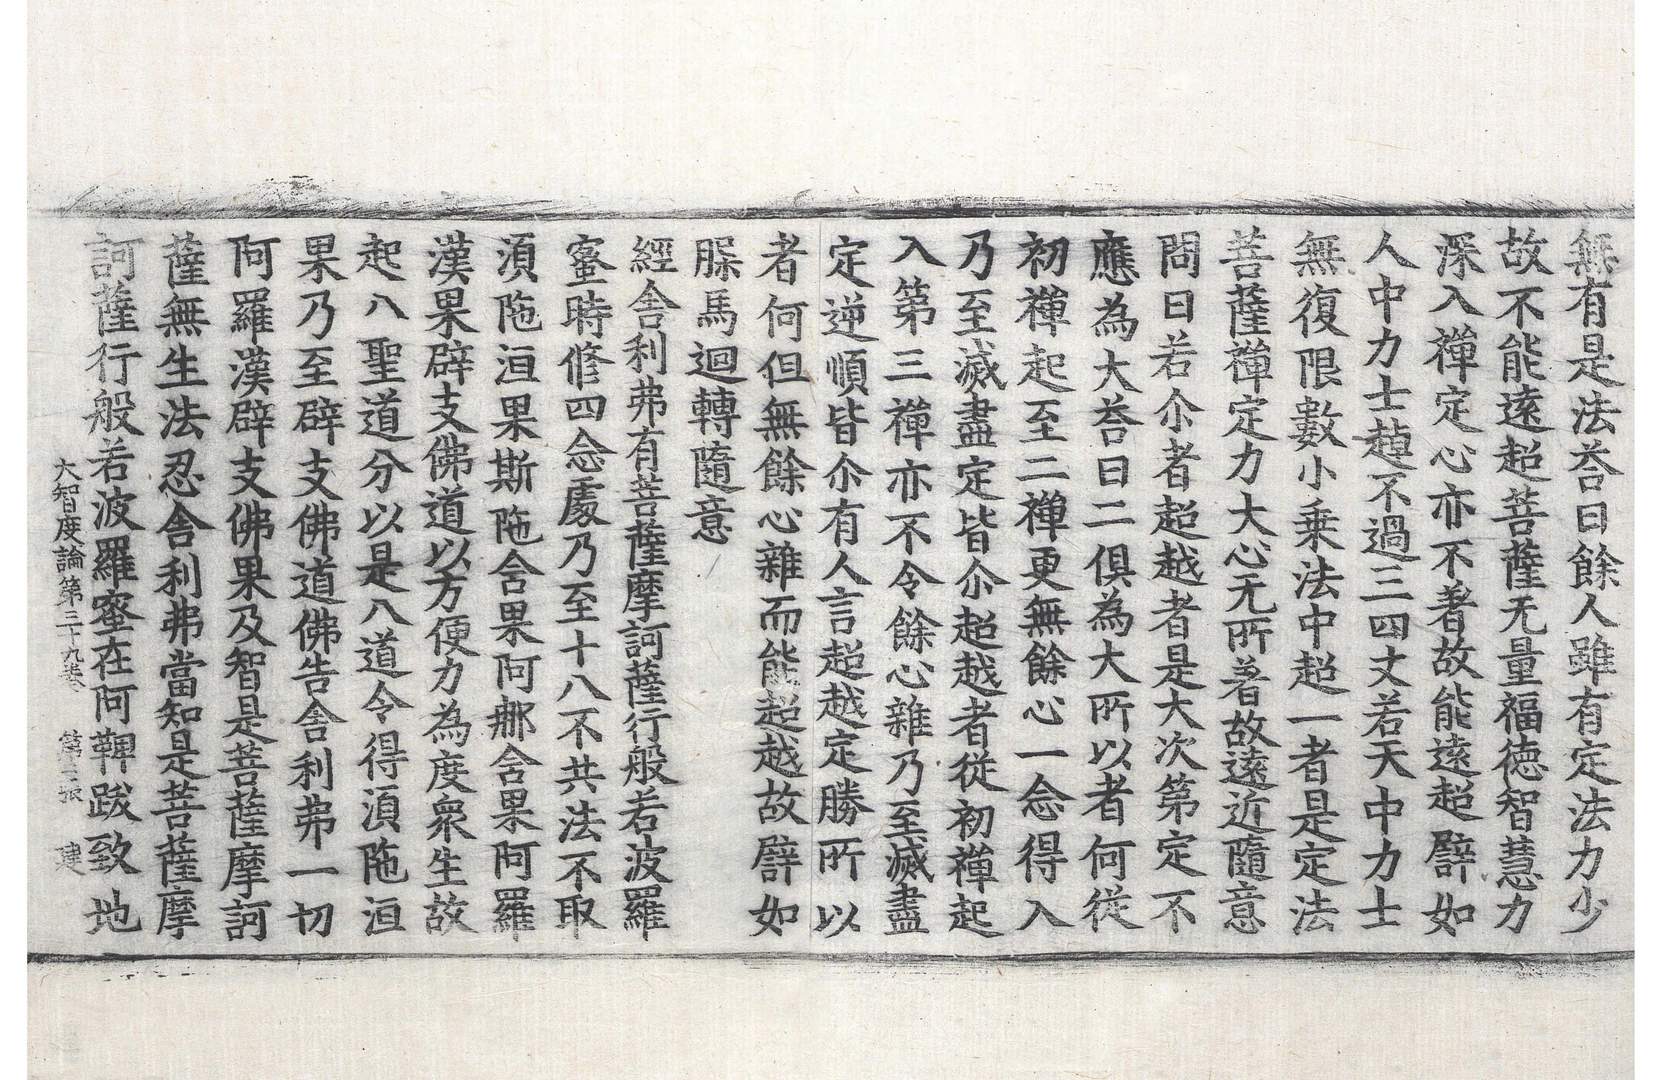 無有是法荅曰餘人雖有定法力少
故不能遠超菩薩无量福德智慧力
深入禪定心亦不著故能遠超譬如
人中力士趠不過三四丈若天中力士
無復限數小乗法中超一者是定法
菩薩禪定力大心无所著故遠近隨意
問曰若尒者超越者是大次第定不
應為大荅曰二俱為大所以者何從
初禪起至二禪更無餘心一念得入
乃至滅盡定皆尒超越者從初禪起
入第三禪亦不令餘心雜乃至滅盡
定逆順皆尒有人言超越定勝所以
者何但無餘心雜而能超越故譬如
馬迴轉隨意
經舍利弗有菩薩摩訶薩行般若波羅
蜜時修四念處乃至十八不共法不取
湏陁洹果斯陁含果阿那含果阿羅
漢果辟支佛道以方便力為度衆生故
起八聖道分以是八道令得湏陁洹
果乃至辟支佛道佛告舍利弗一切
阿羅漢辟支佛果及智是菩薩摩訶
薩無生法忍舍利弗當知是菩薩摩
訶薩行般若波羅蜜在阿鞞跋致地
大智度論第三十九卷 第三張 建